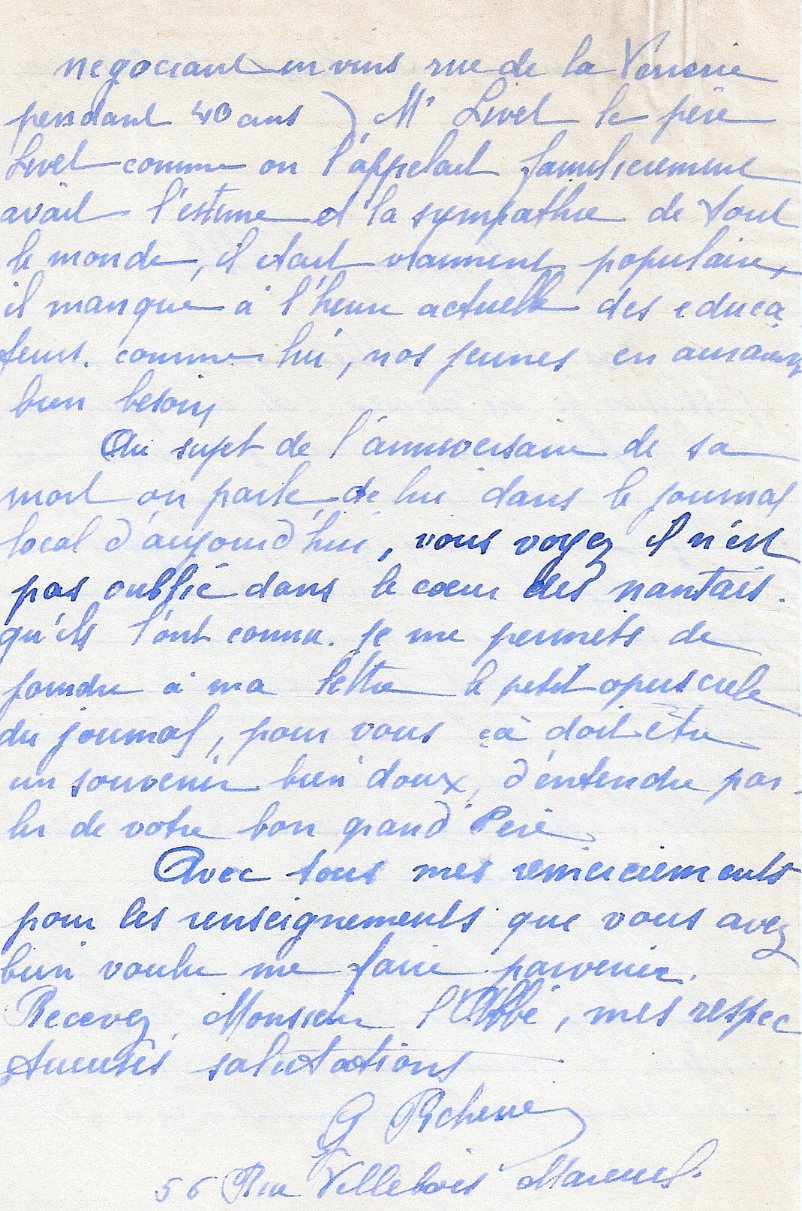 negociant en vins rue de la Verrerie
pendant 40 ans ) Mr Livet le père
Livet comme on l'appelait familièrement
avait l'estime et la sympathie de tout
le monde, il était vraiment populaire,
il manque à l'heure actuelle des educa
teurs. comme lui, nos jeunes en auraient
bien besoin
Au sujet de l'anniversaire de sa
mort on parle de lui dans le journal
local d'aujourd'hui, vous voyez il n'est
pas oublié dans le cœur des nantais.
qu'ils l'ont connu. je me permets de
joindre à ma lettre le petit opuscule
du journal, pour vous çà doit être
un souvenir bien doux, d'entendre par-
ler de votre bon grand Père
Avec tous mes remerciements
pour les renseignements que vous avez
bien voulu me faire parvenir.
Recevez, Monsieur l'Abbé, mes respec
tueuses salutations
G
56 Rue Villebois Mareuil.